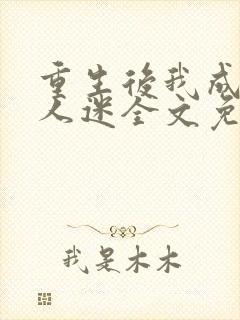 重生後我成
人迷全文免
我是木木